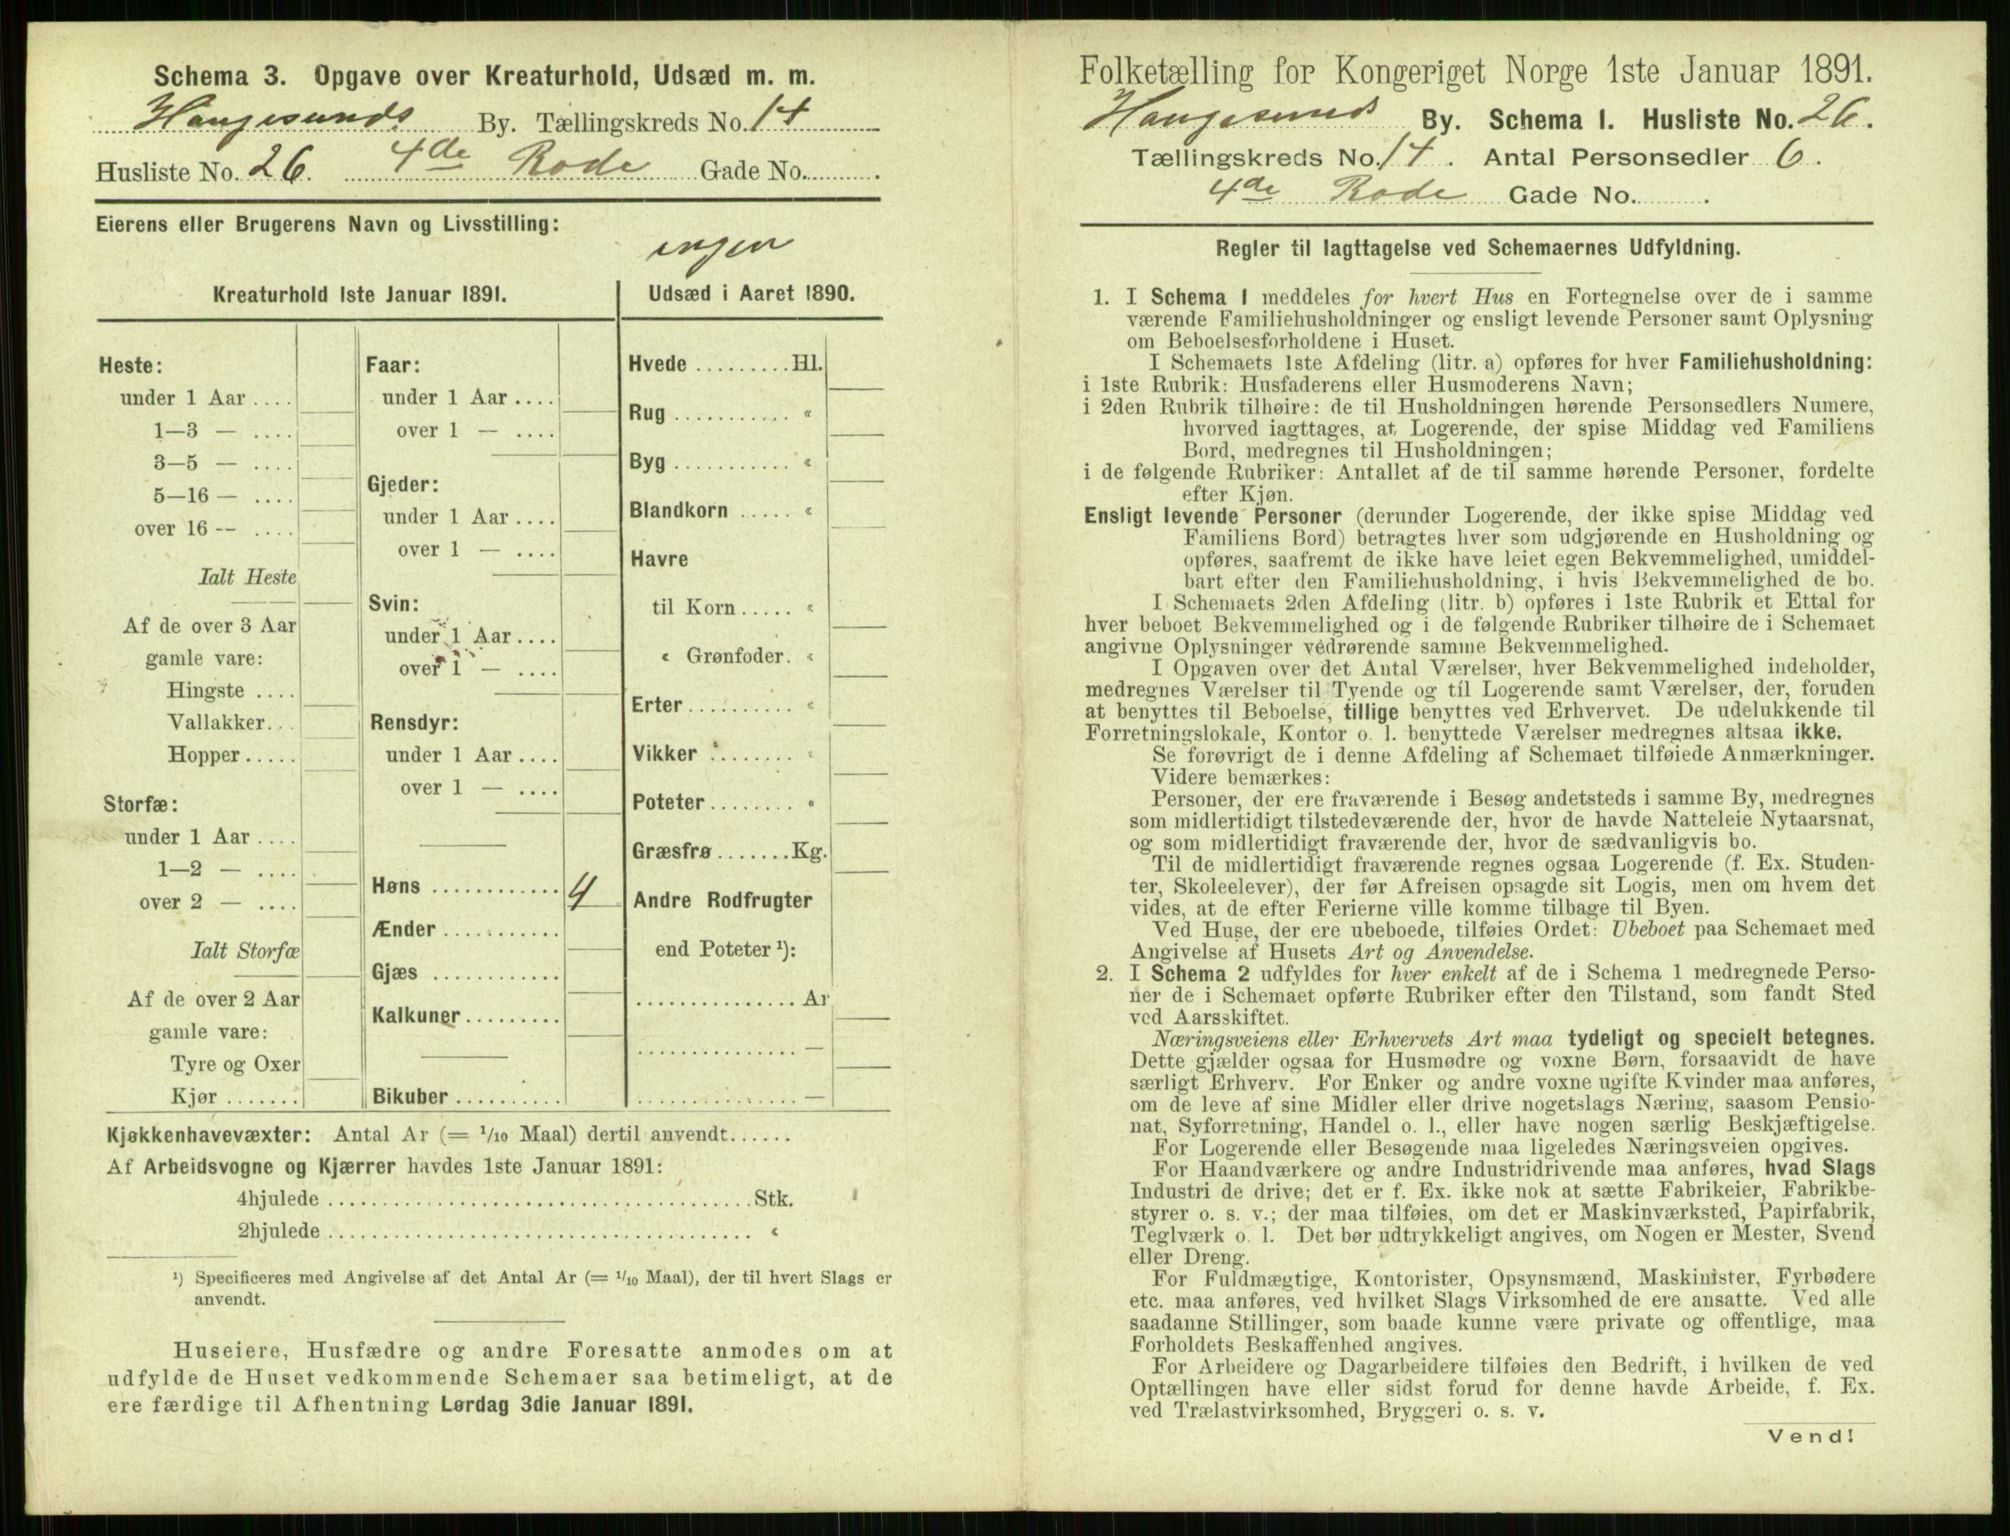 Schema 3. Opgave over Kreaturhold, Udsæd m. m.
Haugesunds By. Tællingskreds No. 14
Husliste No. 26. 4de Rode Gade No.
Eierens eller Brugerens Navn og Livsstilling:
ingen
Kreaturhold 1ste Januar 1891.
Heste:
under 1 Aar....
1—3 — ....
3—5 — ....
5—16 — ....
over 16 -- ....
Ialt Heste
Af de over 3 Aar
gamle vare:
Hingste ....
Vallakker...
Hopper.....
Storfæ:
under 1 Aar....
1—2 — ....
over 2 — ....
Ialt Storfæ
Af de over 2 Aar
gamle vare:
Tyre og Oxer
Kjør.......
Faar:
under 1 Aar....
over 1 — ....
Gjeder:
under 1 Aar....
over 1 — ....
Svin:
under 1 Aar....
over 1 — ....
Rensdyr:
under 1 Aar....
over 1 — ....
Høns ............ 4
Ænder...........
Gjæs ............
Kalkuner.........
Bikuber..........
Udsæd i Aaret 1890.
Hvede.........Hl.
Rug........... «
Byg........... «
Blandkorn ..... «
Havre
til Korn..... «
« Grønfoder. «
Erter.......... «
Vikker ........ «
Poteter........ «
Græsfrø.......Kg.
Andre Rodfrugter
end Poteter ¹):
...............Ar
...............—
...............—
Kjøkkenhavevæxter: Antal Ar (= 1/10 Maal) dertil anvendt......
Af Arbeidsvogne og Kjærrer havdes 1ste Januar 1891:
4hjulede......................................Stk.
2hjulede...................................... «
¹) Specificeres med Angivelse af det Antal Ar (= 1/10 Maal), der til hvert Slags er
anvendt.
Huseiere, Husfædre og andre Foresatte anmodes om at
udfylde de Huset vedkommende Schemaer saa betimeligt, at de
ere færdige til Afhentning Lørdag 3die Januar 1891.
Folketælling for Kongeriget Norge 1ste Januar 1891.
Haugesunds By. Schema 1. Husliste No. 26.
Tællingskreds No. 14. Antal Personsedler 6.
4de Rode Gade No. .
Regler til Iagttagelse ved Schemaernes Udfyldning.
1. I Schema 1 meddeles for hvert Hus en Fortegnelse over de i samme
værende Familiehusholdninger og ensligt levende Personer samt Oplysning
om Beboelsesforholdene i Huset.
I Schemaets 1ste Afdeling (litr. a) opføres for hver Familiehusholdning:
i 1ste Rubrik: Husfaderens eller Husmoderens Navn;
i 2den Rubrik tilhøire: de til Husholdningen hørende Personsedlers Numere,
hvorved iagttages, at Logerende, der spise Middag ved Familiens
Bord, medregnes til Husholdningen;
i de følgende Rubriker: Antallet af de til samme hørende Personer, fordelte
efter Kjøn.
Ensligt levende Personer (derunder Logerende, der ikke spise Middag ved
Familiens Bord) betragtes hver som udgjørende en Husholdning og
opføres, saafremt de ikke have leiet egen Bekvemmelighed, umiddel-
bart efter den Familiehusholdning, i hvis Bekvemmelighed de bo.
I Schemaets 2den Afdeling (litr. b) opføres i 1ste Rubrik et Ettal for
hver beboet Bekvemmelighed og i de følgende Rubriker tilhøire de i Schemaet
angivne Oplysninger vedrørende samme Bekvemmelighed.
I Opgaven over det Antal Værelser, hver Bekvemmelighed indeholder,
medregnes Værelser til Tyende og til Logerende samt Værelser, der, foruden
at benyttes til Beboelse, tillige benyttes ved Erhvervet. De udelukkende til
Forretningslokale, Kontor o. l. benyttede Værelser medregnes altsaa ikke.
Se forøvrigt de i denne Afdeling af Schemaet tilføiede Anmærkninger.
Videre bemærkes:
Personer, der ere fraværende i Besøg andetsteds i samme By, medregnes
som midlertidigt tilstedeværende der, hvor de havde Natteleie Nytaarsnat,
og som midlertidigt fraværende der, hvor de sædvanligvis bo.
Til de midlertidigt fraværende regnes ogsaa Logerende (f. Ex. Studen-
ter, Skoleelever), der før Afreisen opsagde sit Logis, men om hvem det
vides, at de efter Ferierne ville komme tilbage til Byen.
Ved Huse, der ere ubeboede, tilføies Ordet: Ubeboet paa Schemaet med
Angivelse af Husets Art og Anvendelse.
2. I Schema 2 udfyldes for hver enkelt af de i Schema 1 medregnede Perso-
ner de i Schemaet opførte Rubriker efter den Tilstand, som fandt Sted
ved Aarsskiftet.
Næringsveiens eller Erhvervets Art maa tydeligt og specielt betegnes.
Dette gjælder ogsaa for Husmødre og voxne Børn, forsaavidt de have
særligt Erhverv. For Enker og andre voxne ugifte Kvinder maa anføres,
om de leve af sine Midler eller drive nogetslags Næring, saasom Pensio-
nat, Syforretning, Handel o. l., eller have nogen særlig Beskjæftigelse.
For Logerende eller Besøgende maa ligeledes Næringsveien opgives.
For Haandværkere og andre Industridrivende maa anføres, hvad Slags
Industri de drive; det er f. Ex. ikke nok at sætte Fabrikeier, Fabrikbe-
styrer o. s. v.; der maa tilføies, om det er Maskinværksted, Papirfabrik,
Teglværk o. l. Det bør udtrykkeligt angives, om Nogen er Mester, Svend
eller Dreng.
For Fuldmægtige, Kontorister, Opsynsmænd, Maskinister, Fyrbødere
etc. maa anføres, ved hvilket Slags Virksomhed de ere ansatte. Ved alle
saadanne Stillinger, som baade kunne være private og offentlige, maa
Forholdets Beskaffenhed angives.
For Arbeidere og Dagarbeidere tilføies den Bedrift, i hvilken de ved
Optællingen have eller sidst forud for denne havde Arbeide, f. Ex.
ved Trælastvirksomhed, Bryggeri o. s. v.
Vend!